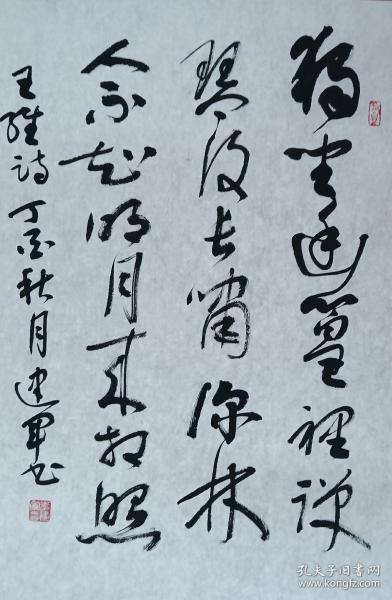 獨坐幽篁裡弹
琴復長嘯深林
人不知明月来相照
王維诗丁酉秋月建军书
孔夫子旧书网
www.kongfz.com